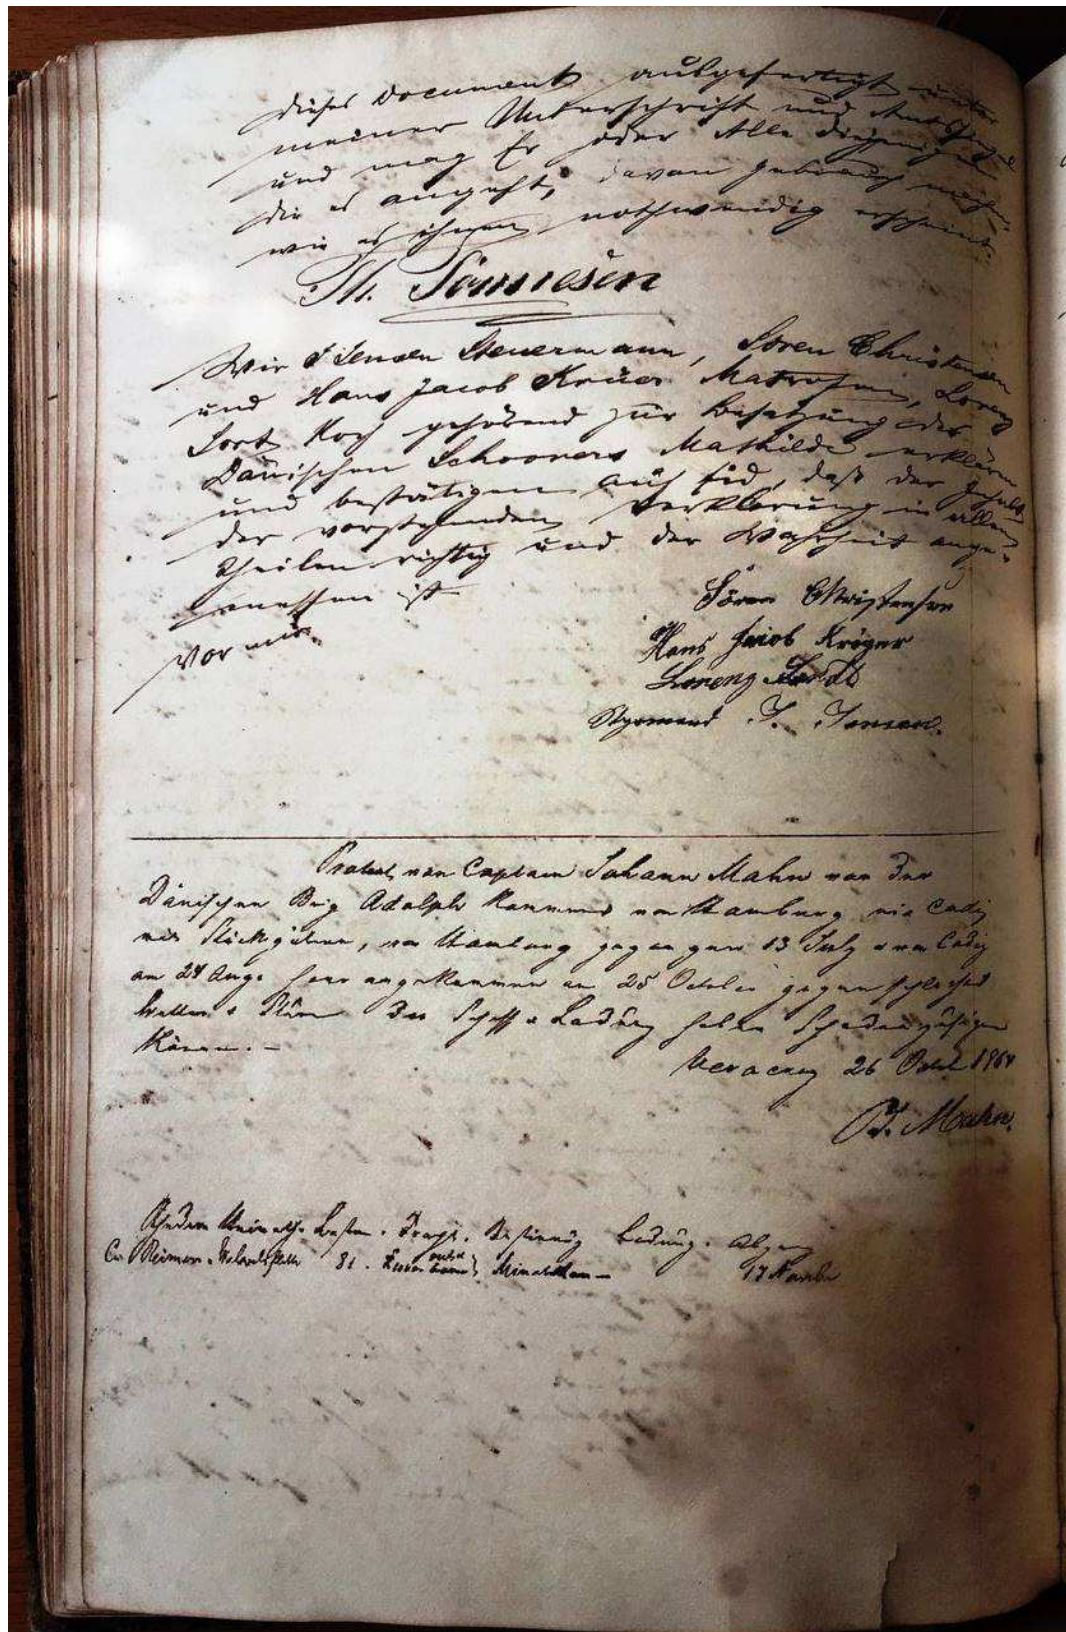 dieses Document ausgefertigt unter
meiner Unterschrift und Amtssiegel
und mag Er oder Alle diejenigen
die es angeht, davon Gebrauch machen
wie es ihnen nothwendig erscheint.
Th. Tönniesen
Wir J Jensen Steuermann, Sören Christensen
und Hans Jacob Krüer Matrosen, Lorenz
Sort Koch gehörend zur Besatzung des
Dänischen Schooners Mathilde erklären
und bestätigen auf Eid, daß der Inhalt
der vorstehenden Verklarung in allen
Theilen richtig und der Wahrheit ange-
messen ist
Vor mir
Sören Christensen
Hans Jacob Kröger
Lorenz
Styrmand J. Jensen.
Protest von Captain Johann Mahn von der
Dänischen Brig Adolph kommend von Hamburg via Cadiz
mit Stückgütern, von Hamburg gegangen 13 July u von Cadiz
am 24 Aug. hier angekommen am 25 October gegen schlechtes
Wetter & Sturm Schiff & Ladung haben Schaden zufügen
können. -
Veracruz 26 Octob 1864
J. Mahn.
Rheder Heimath. Lasten. Tracht. Bestimmg Ladung. Abgang
81. Minatitlan - 17 Novbr